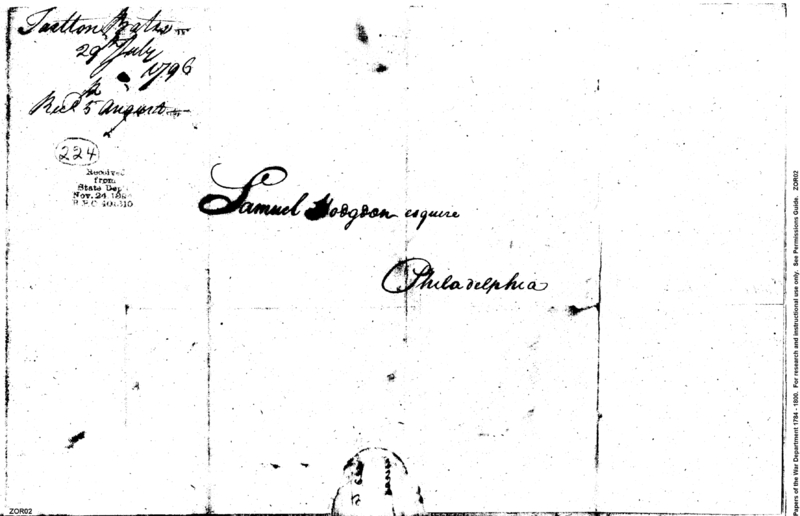 Tarlton Bates
29th July
1796
Recd 5 August
224
Received
from
State Dept.
Nov. 24
R.P.C
Samuel Hodgdon esquire
Philadelphia
ZOR02
Papers of the War Department 1784 - 1800. For research and instructional use only. See Permissions Guide. ZOR02